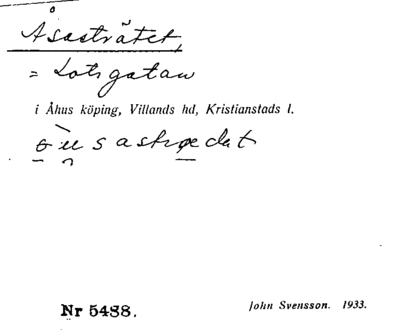 Åsasträtet,
= Lotsgatan
i Åhus köping, Villands hd, Kristianstads l.
Nr 5488.
John Svensson. 1933.